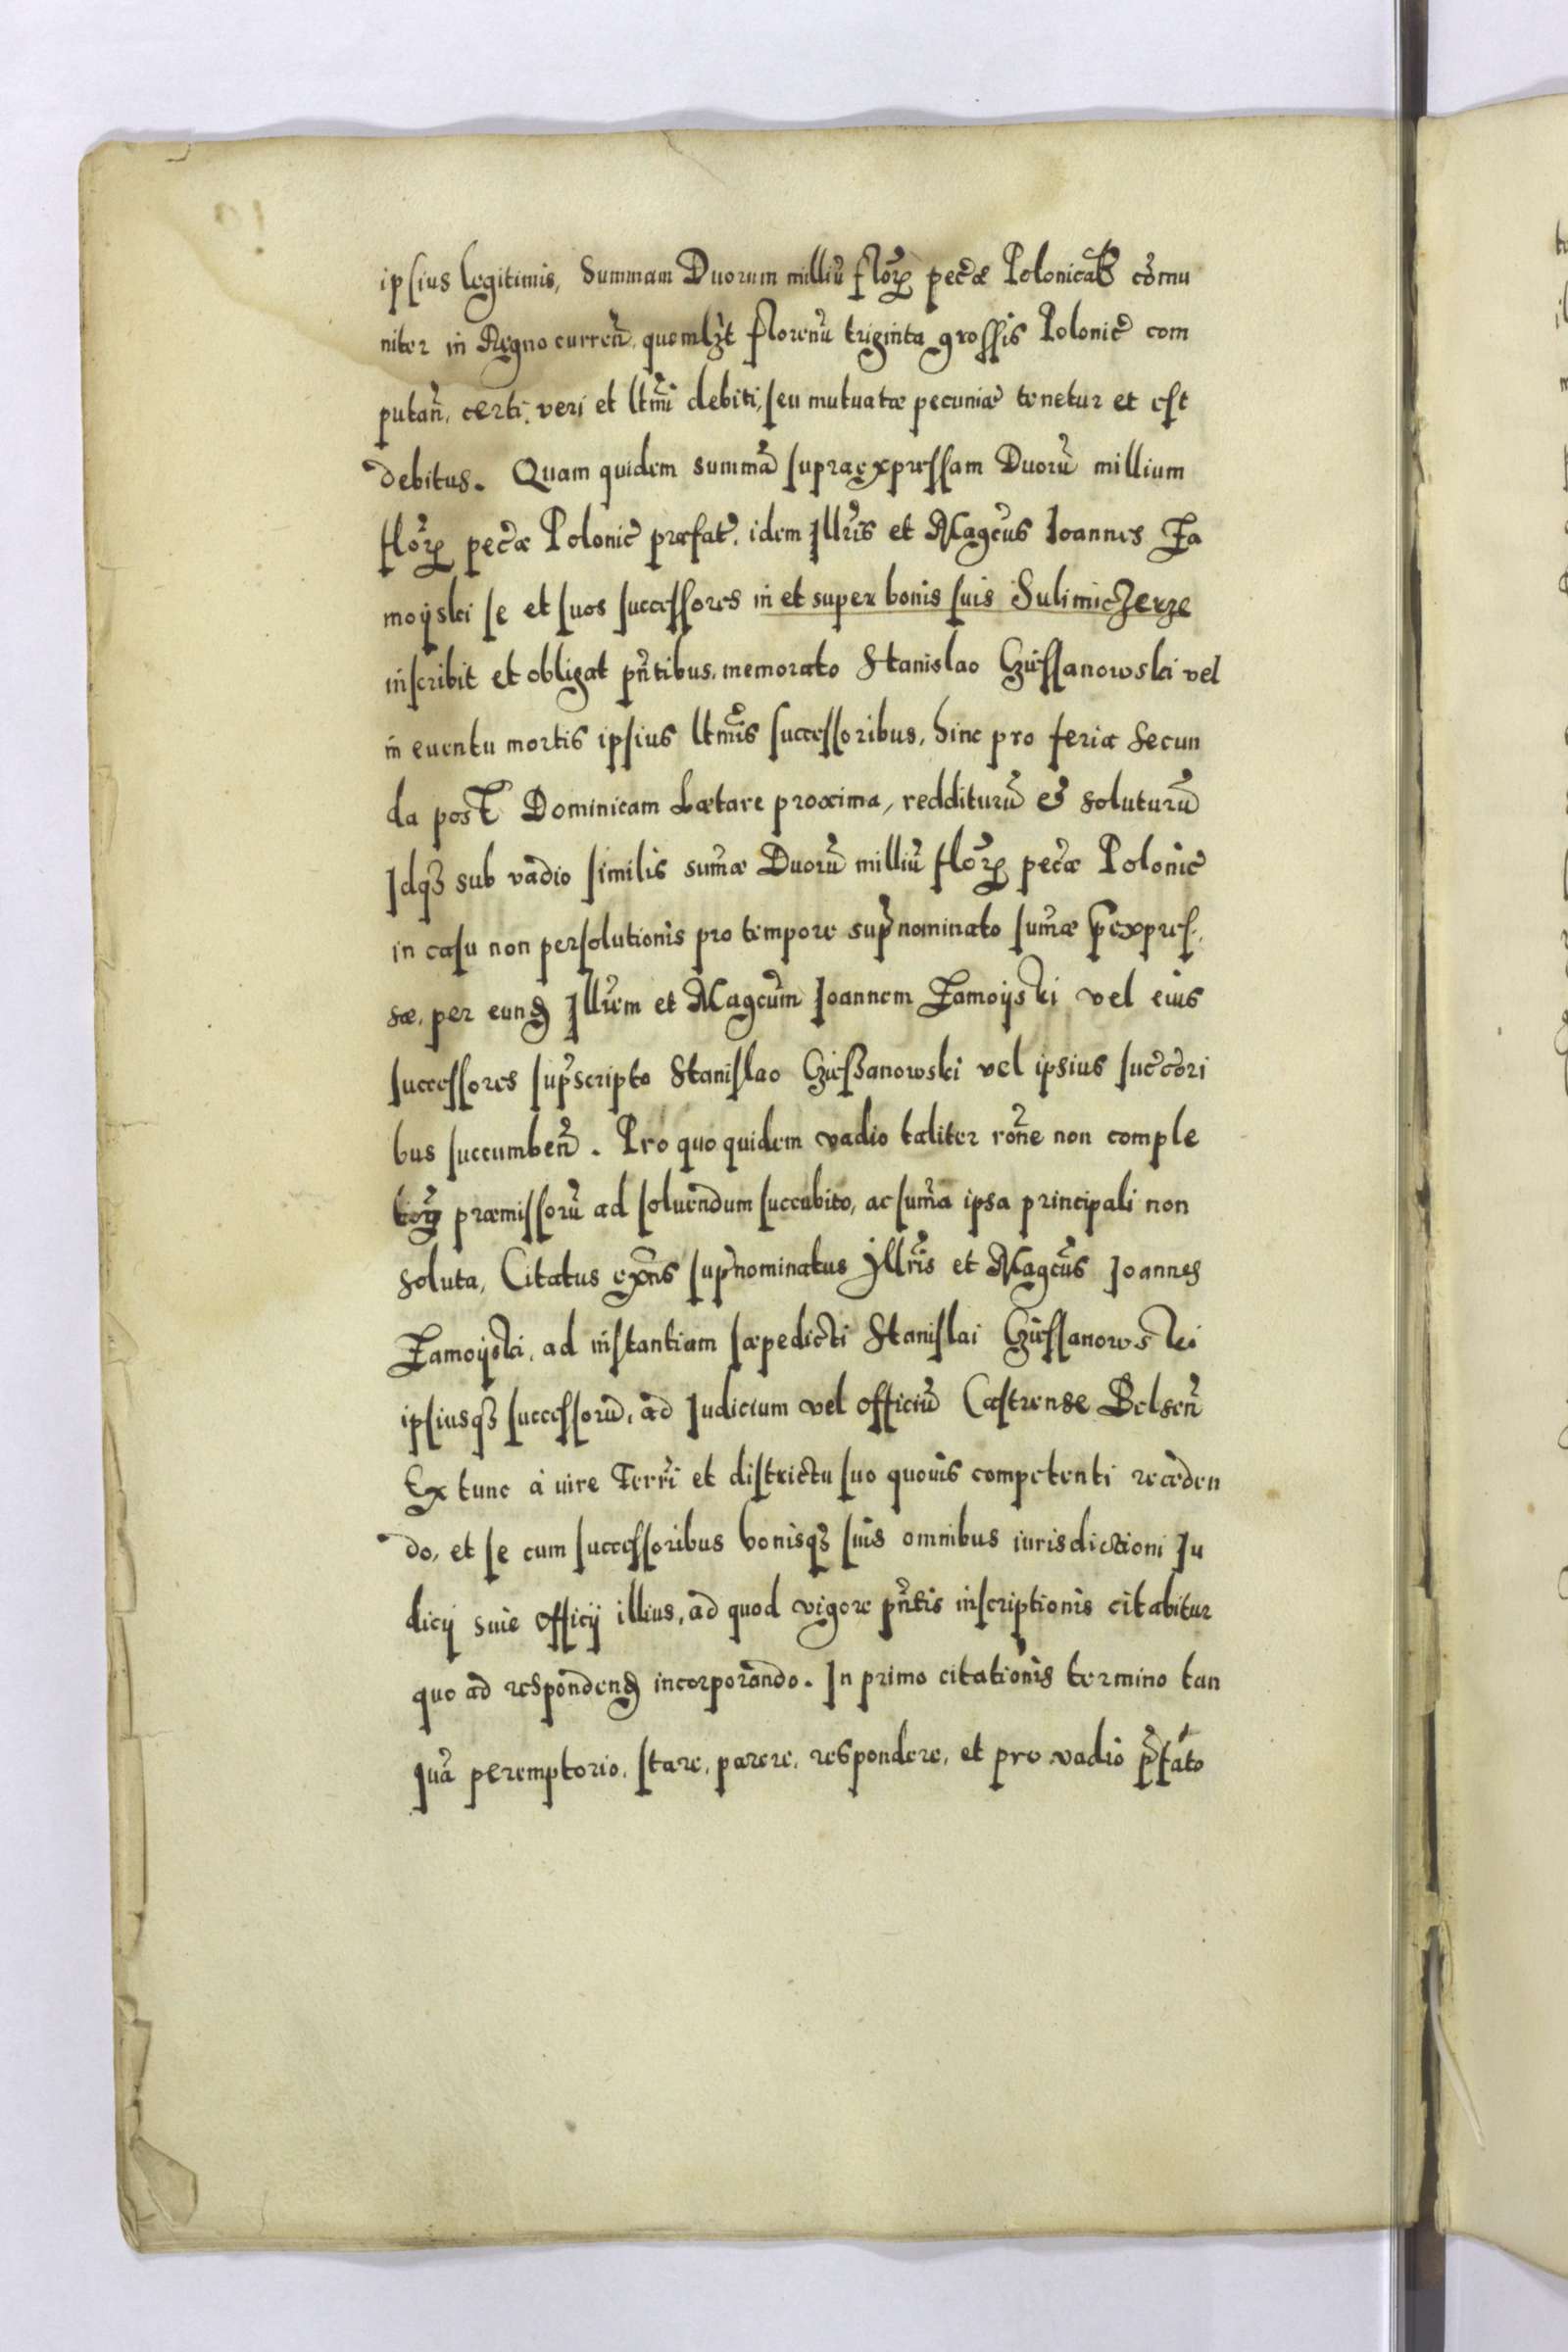 ipsius legitimis, Summam Duorum milliũ floꝝ pecĩæ Polonicałł cõmu
niter in Regno curreñ. quemlꝫt florenũ triginta grossis Polonic̃ com
putañ, certi, veri et ltm̃i debiti, seu mutuatæ pecuniæ tenetur et est
debitus. Quam quidem summã supraexpressam Duorũ millium
floꝝ pec̃æ Polonic̃ præfat̃, idem Illr̃is et Magc̃us Ioannes Za
moÿski se et suos successores in et super bonis suis Sulimiczerze
inscribit et obligat pñtibus, memorato Stanislao Czieſſanowski vel
in euentu mortis ipsius ltm̃is successoribus, hinc pro feria Secun
da post Dominicam Lætare proxima, redditurũ et soluturũ
Idqꝫ sub vadio similis sum̃æ Duorũ milliũ floꝝ pec̃æ Polonic̃
in casu non persolutionis pro tempore sup̃nominato sum̃æ p̃expres-
sæ, per eunđ Illr̃em et Magc̃um Ioannem Zamoÿski vel eius
successores sup̃scripto Stanislao Czießanowski vel ipsius succ̃ori
bus succumbeñ. Pro quo quidem vadio taliter rõne non comple
toꝝ præmissorũ ad soluendum succubito, ac sum̃a ipsa principali non
soluta, Citatus exñs sup̃nominatus Illr̃is et Magc̃us Ioannes
Zamoÿski, ad instantiam sæpedicti Stanislai Czieſſanowski
ipsiusqꝫ successorũ, ad Iudicium vel officiũ Castrense Belseñ
Ex tunc à iure Terr̃i et districtu suo quouis competenti receden
do, et se cum successoribus bonisqꝫ suis omnibus iurisdictioni Iu
dicÿ siue Officÿ illius, ad quod vigore pñtis inscriptionis citabitur
quo ad respondenđ incorporando. In primo citationis termino tan
quã peremptorio, stare, parere, respondere, et pro vadio p̃fato